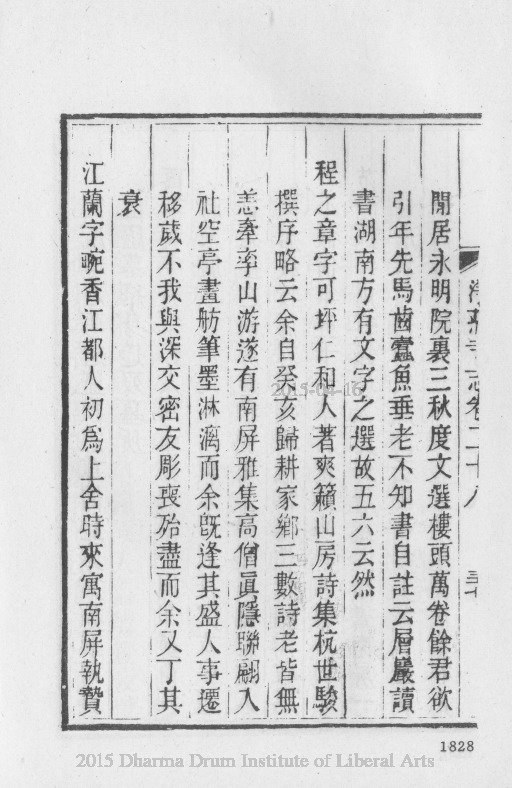 卷二十八
閒居永明院裏三秋度文選樓頭萬卷餘君欲
引年先馬齒蠹魚垂老不知書自註云層巖讀
書湖南方有文字之選故五六云然
程之章字可坪仁和人著爽籟山房詩集杭世駿
撰序略云余自癸亥歸耕家鄉三數詩老皆無
恙牽率山游遂有南屏雅集高僧眞隱聯翩入
社空亭畫舫筆墨淋漓而余旣逢其盛人事遷
移歲不我與深交密友彫喪殆盡而余又丁其
衰
江蘭字畹香江都人初爲上舍時來寓南屏執贄
2015-04-16
1828
2015 Dharma Drum Institute of Liberal Arts